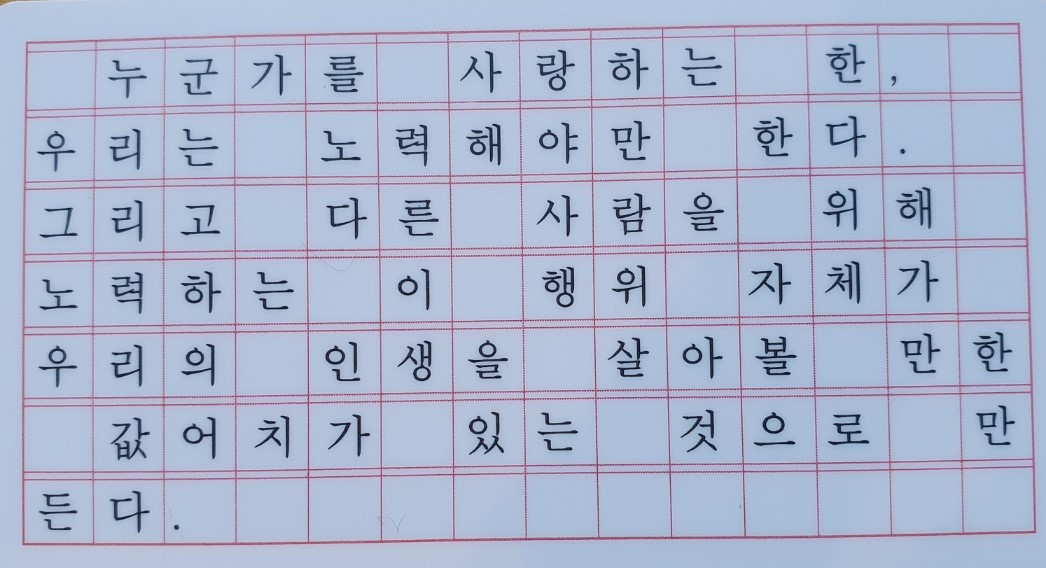 누군가를 사랑하는 한,
우리는 노력해야만 한다.
그리고 다른 사람을 위해
노력하는 이 행위 자체가
우리의 인생을 살아볼 만한
값어치가 있는 것으로 만
든다.